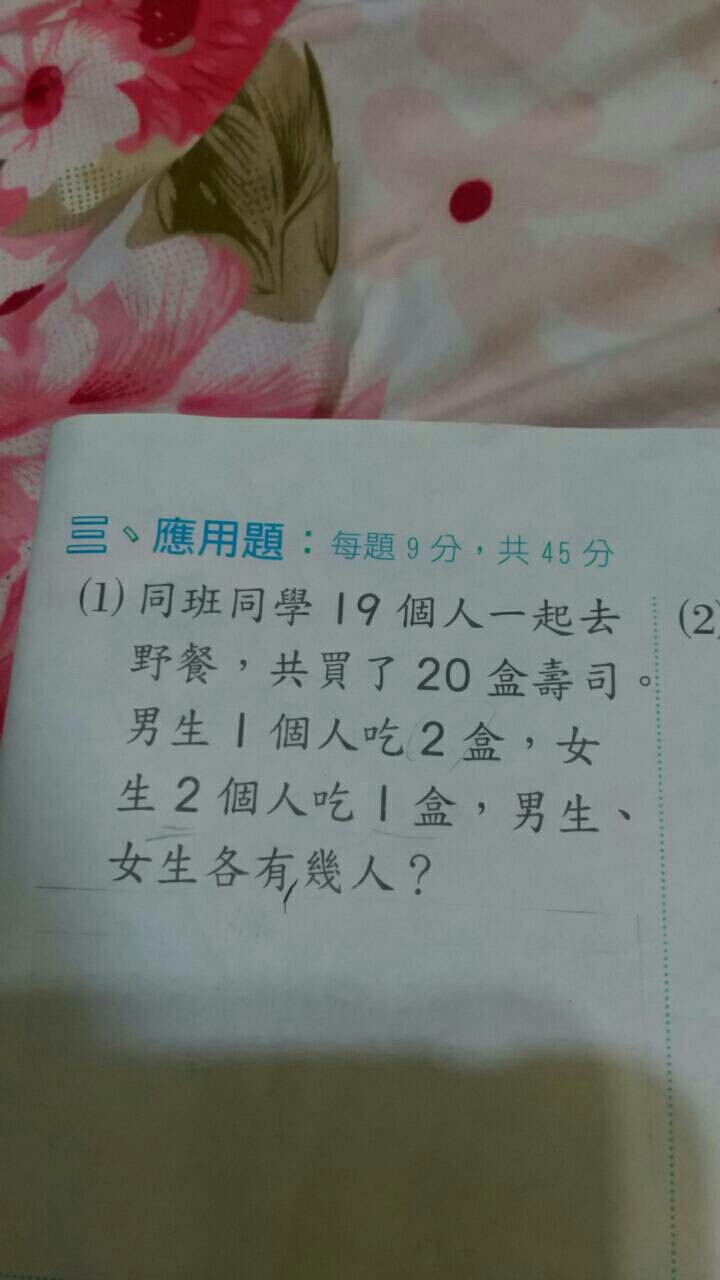 三、應用題：每題 9 分，共 45 分
(1) 同班同學 19 個人一起去
野餐，共買了 20 盒壽司。
男生 1 個人吃 2 盒，女
生 2 個人吃 1 盒，男生、
女生各有幾人？
(2)